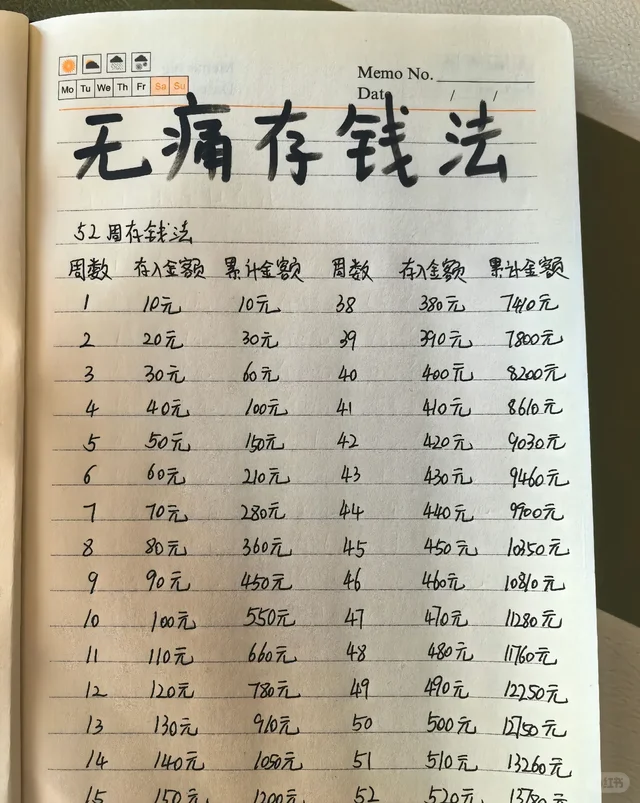 Memo No.
Mo Tu We Th Fr Sa Su
Date / /
无痛存钱法
52周存钱法
周数 存入金额 累计金额 周数 存入金额 累计金额
1 10元 10元 38 380元 7410元
2 20元 30元 39 390元 7800元
3 30元 60元 40 400元 8200元
4 40元 100元 41 410元 8610元
5 50元 150元 42 420元 9030元
6 60元 210元 43 430元 9460元
7 70元 280元 44 440元 9900元
8 80元 360元 45 450元 10350元
9 90元 450元 46 460元 10810元
10 100元 550元 47 470元 11280元
11 110元 660元 48 480元 11760元
12 120元 780元 49 490元 12250元
13 130元 910元 50 500元 12750元
14 140元 1050元 51 510元 13260元
15 150元 1200元 52 520元 13780元